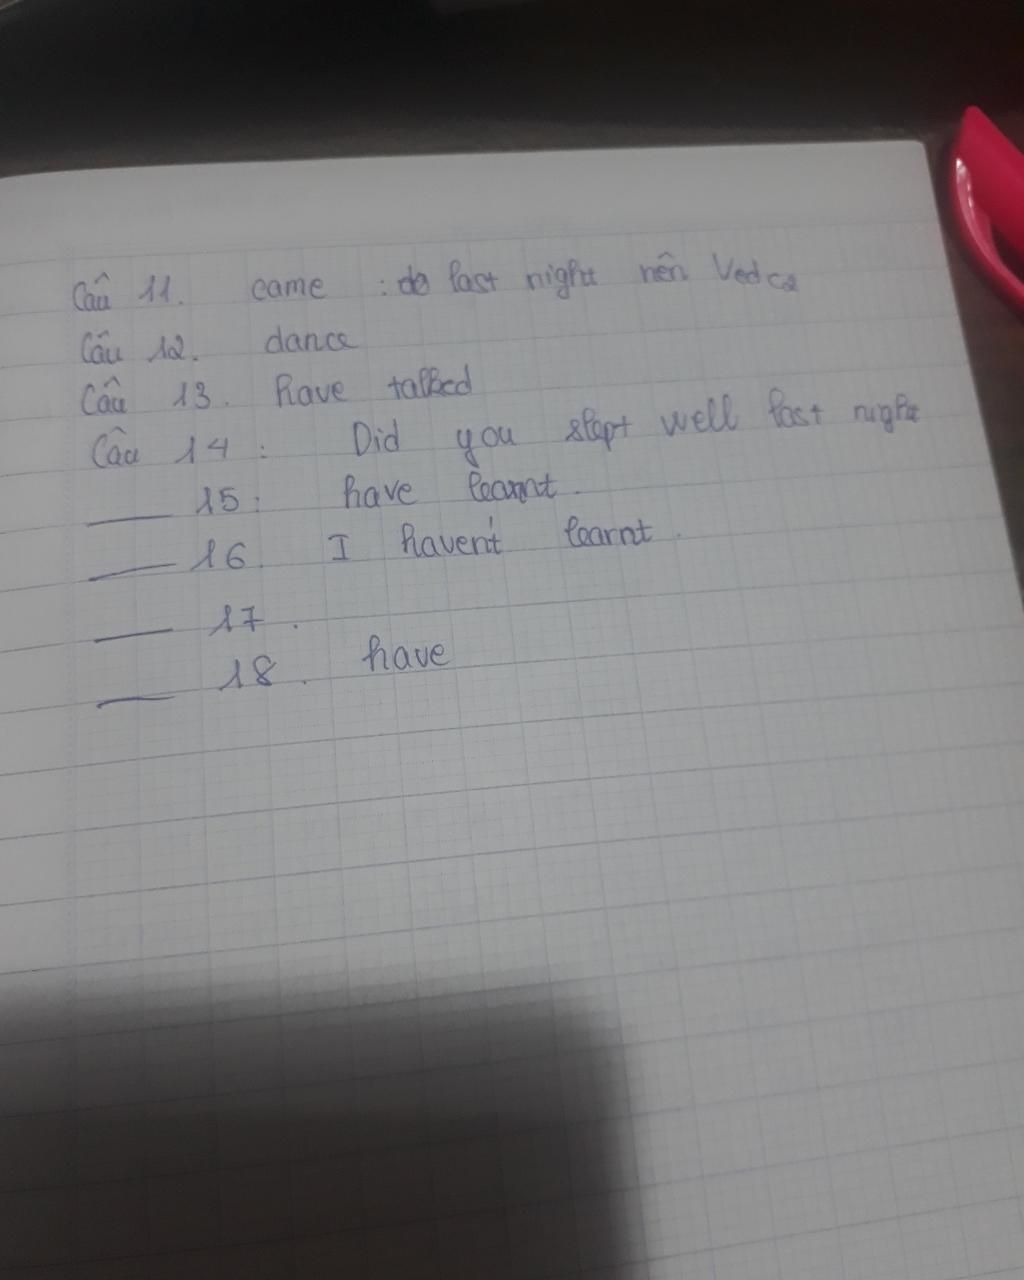 Câu 11. came : do last night nên Ved c2
Câu 12. dance
Câu 13. have talked
Câu 14 : Did you slept well last night
15: have learnt.
16. I haven't learnt.
17.
18. have